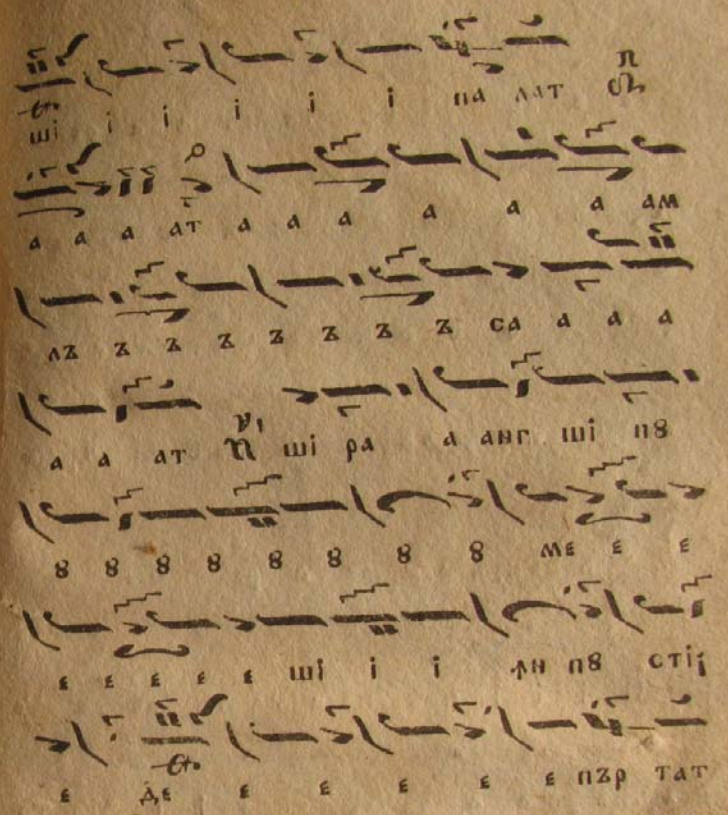 ші і і і і і па лат
а а а ат а а а а а а ам
лъ ъ ъ ъ ъ ъ ъ ъ са а а а
а а ат ші ра а анг ші пꙋ
ꙋ ꙋ ꙋ ꙋ ꙋ ꙋ ꙋ ꙋ ме е е
е е е е е ші і і ꙟн пꙋ стіі
е де е е е е е пър тат